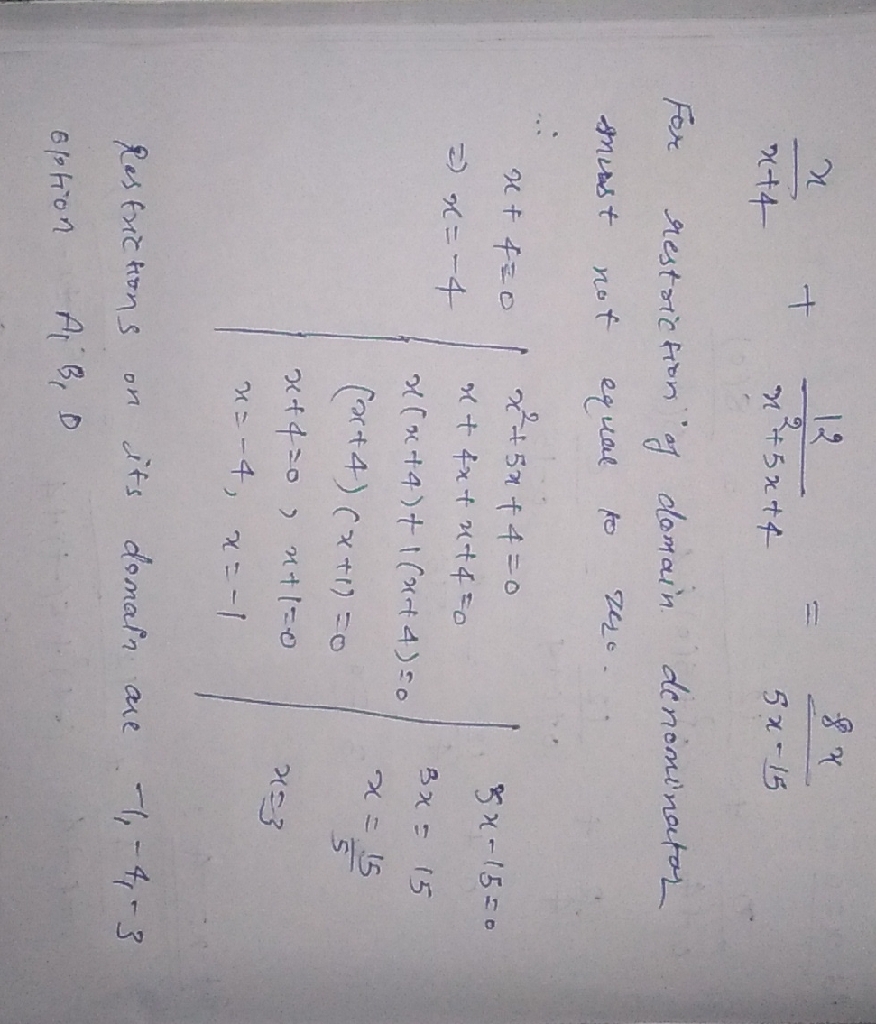 x/(x+4) + 12/(x²+5x+4) = 8x/(5x-15)
For restriction of domain denominator
must not equal to zero.
∴ x+4=0
⇒ x=-4
x²+5x+4=0
x+4x+x+4=0
x(x+4)+1(x+4)=0
(x+4)(x+1)=0
x+4=0, x+1=0
x=-4, x=-1
5x-15=0
5x=15
x=15/5
x=3
Restrictions on its domain are -1,-4,-3
option A, B, D